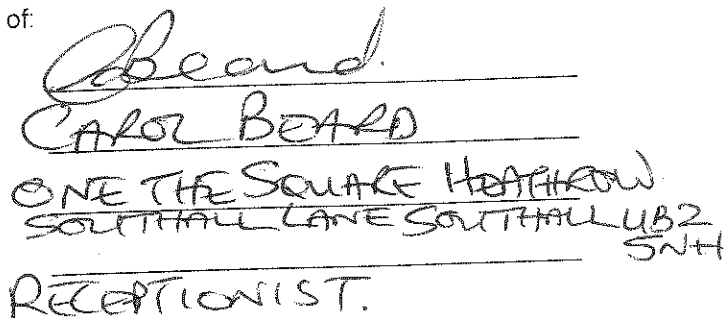 of:
CBeard.
CAROL BEARD
ONE THE SQUARE HEATHROW
SOUTHALL LANE SOUTHALL UB2
5NH
RECEPTIONIST.